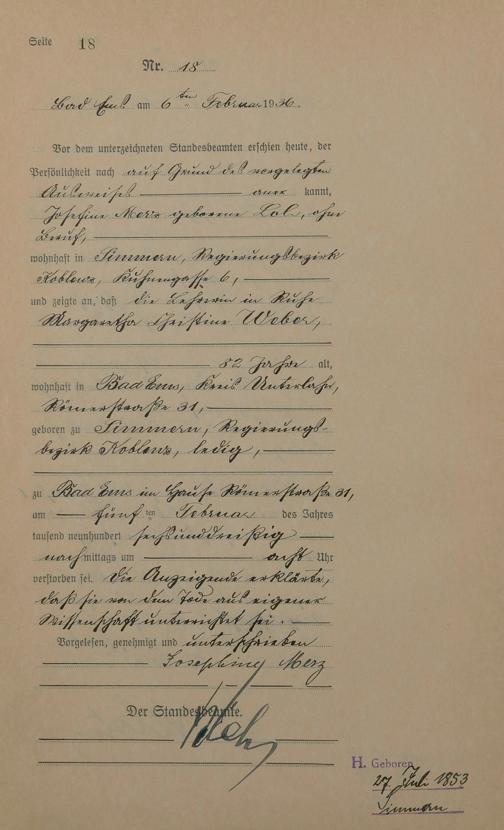 Seite 18
Nr. 18
Bad Ems am 6 ten Februar 1936.
Vor dem unterzeichneten Standesbeamten erschien heute, der
Persönlichkeit nach auf Grund des vorgelegten
Ausweises aner kannt,
Josefine Merz geborene Lol, ohne
Beruf,
wohnhaft in Simmern, Regierungsbezirk
Koblenz, Kuhnengasse 6,
und zeigte an, daß die Lehrerin in Ruhe
Margaretha Christine Weber,
82 Jahre alt,
wohnhaft in Bad Ems, Kreis Unterlahn,
Römerstraße 31,
geboren zu Simmern, Regierungs-
bezirk Koblenz, ledig,
zu Bad Ems im Hause Römerstraße 31,
am fünf ten Februar des Jahres
tausend neunhundert sechsunddreißig
nachmittags um acht Uhr
verstorben sei. Die Anzeigende erklärte,
daß sie von dem Tode aus eigener
Wissenschaft unterrichtet sei.
Vorgelesen, genehmigt und unterschrieben
Josephine Merz
Der Standesbeamte.
H. Geboren
27. Juli 1853
Simmern